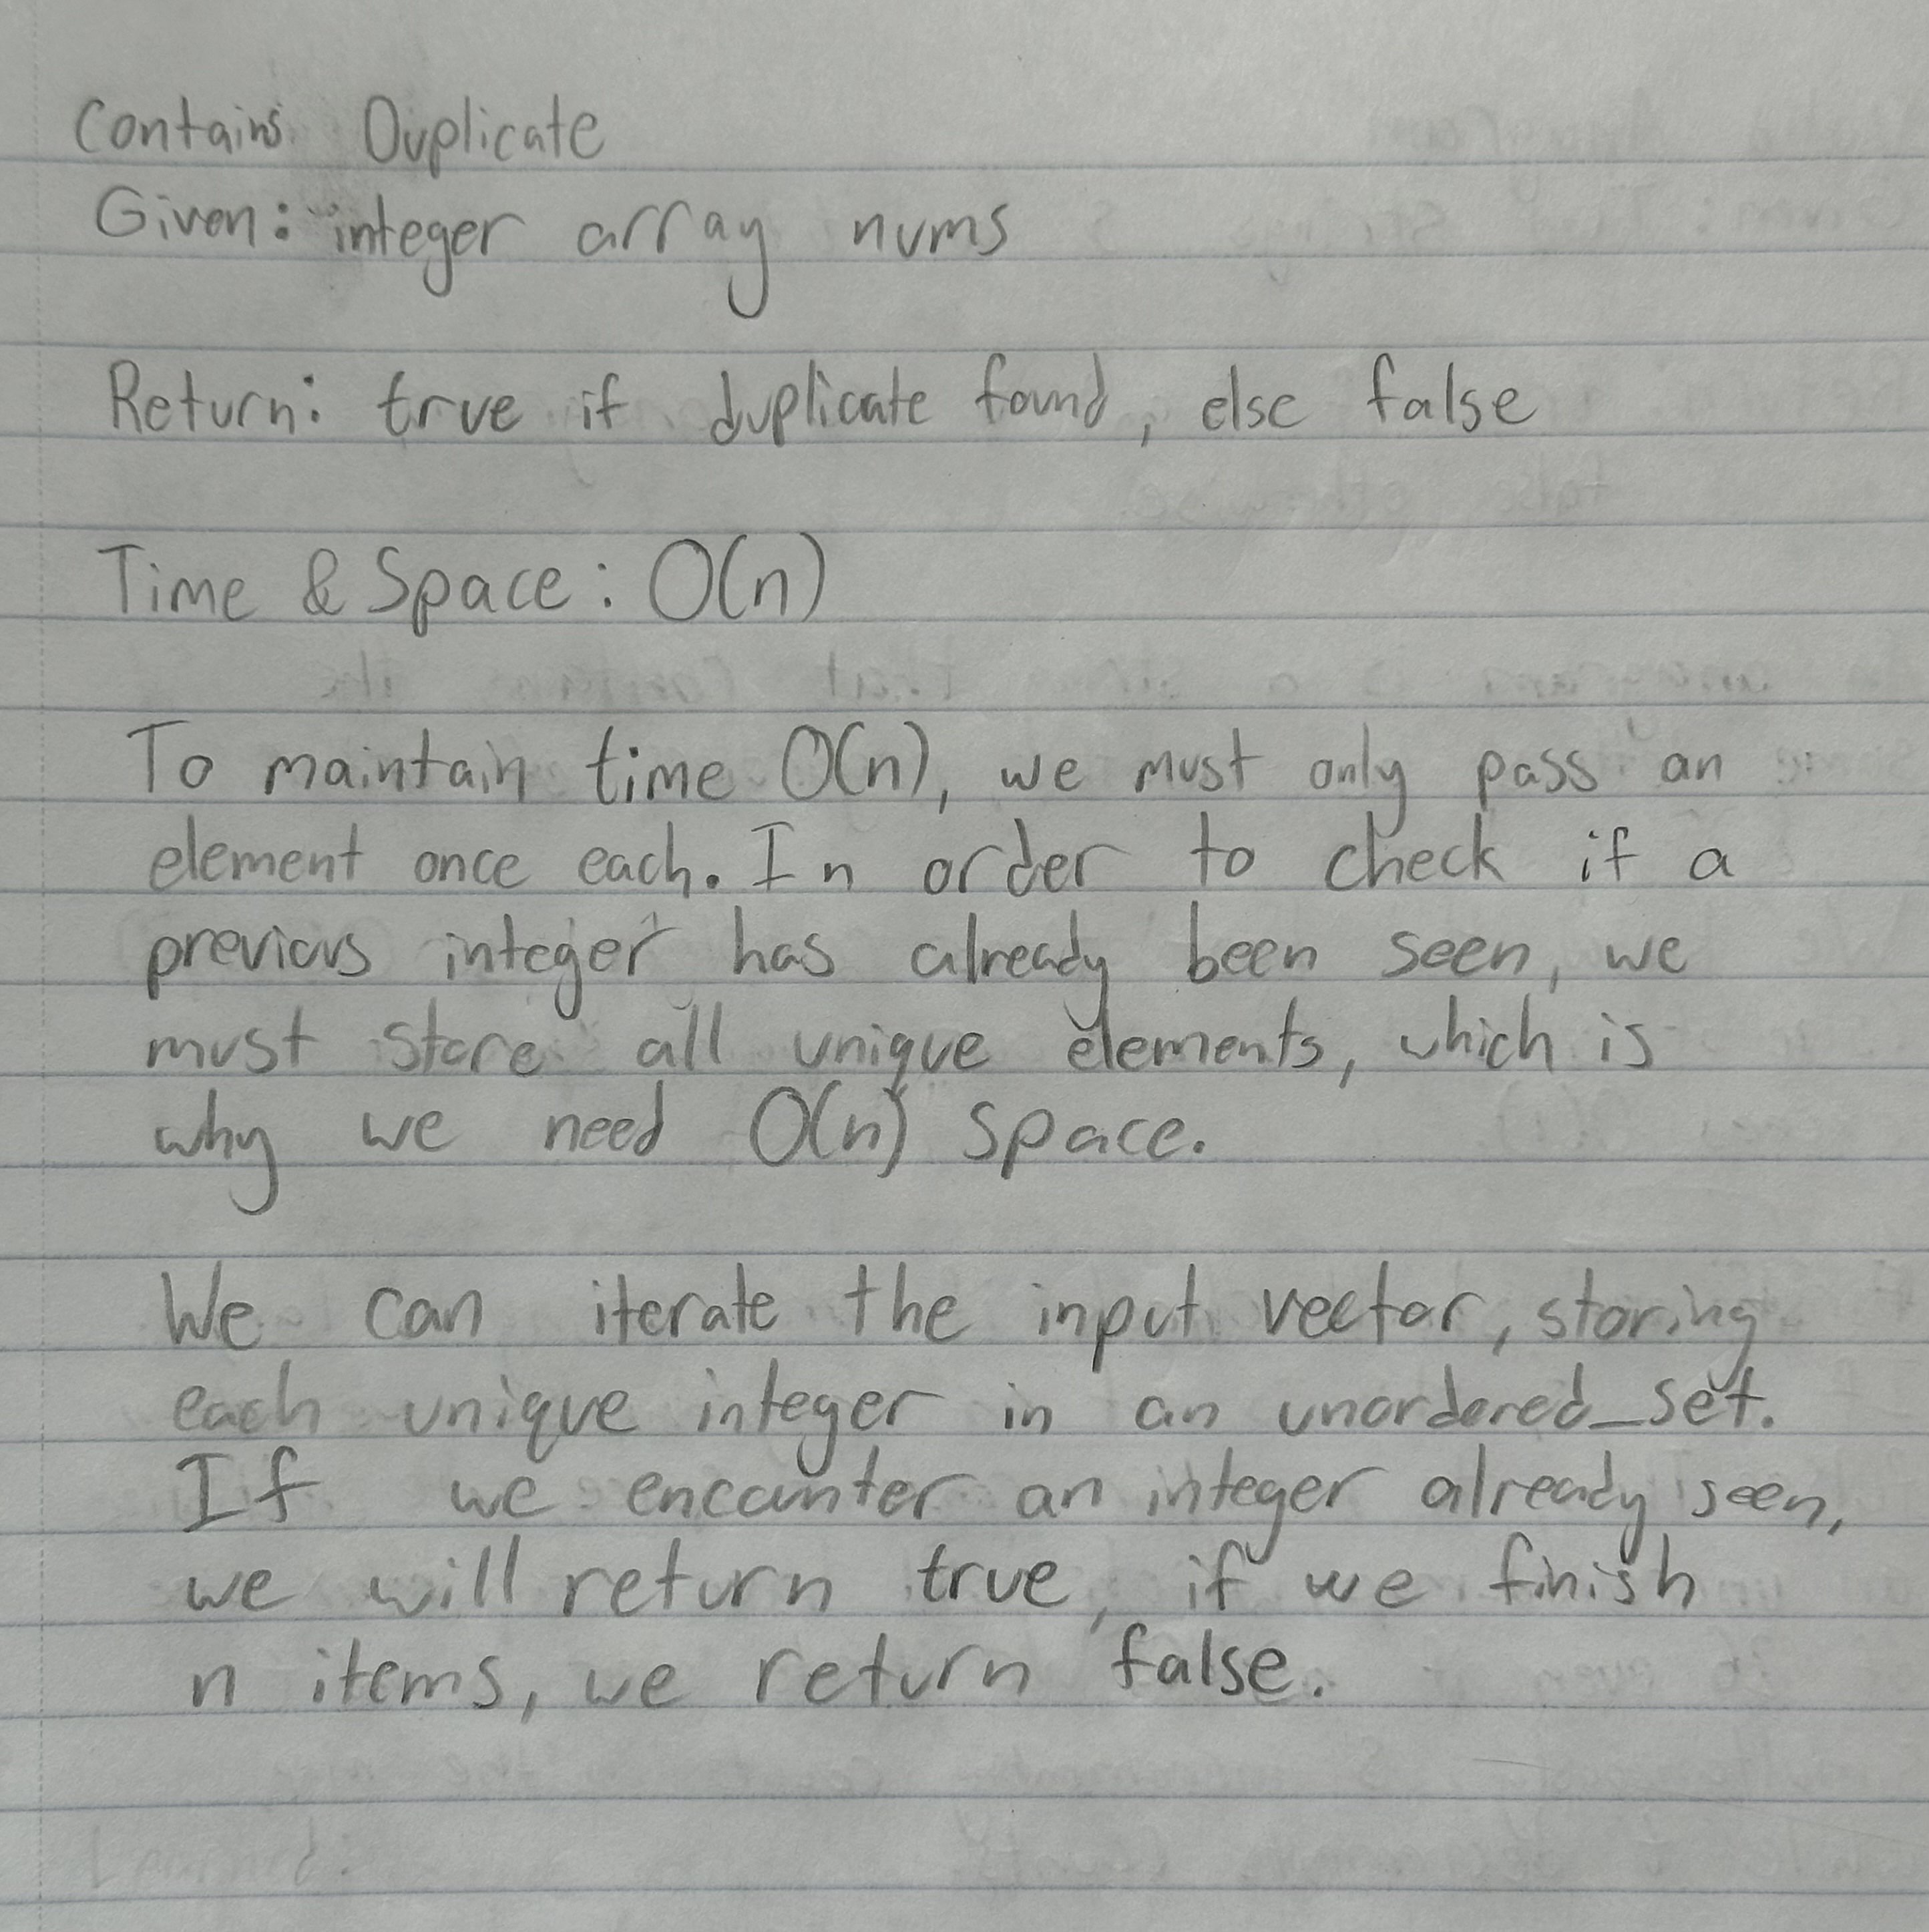 Contains Duplicate
Given: integer array nums
Return: true if duplicate found, else false
Time & Space: O(n)
To maintain time O(n), we must only pass an
element once each. In order to check if a
previous integer has already been seen, we
must store all unique elements, which is
why we need O(n) space.
We can iterate the input vector, storing
each unique integer in an unordered_set.
If we encounter an integer already seen,
we will return true, if we finish
n items, we return false.